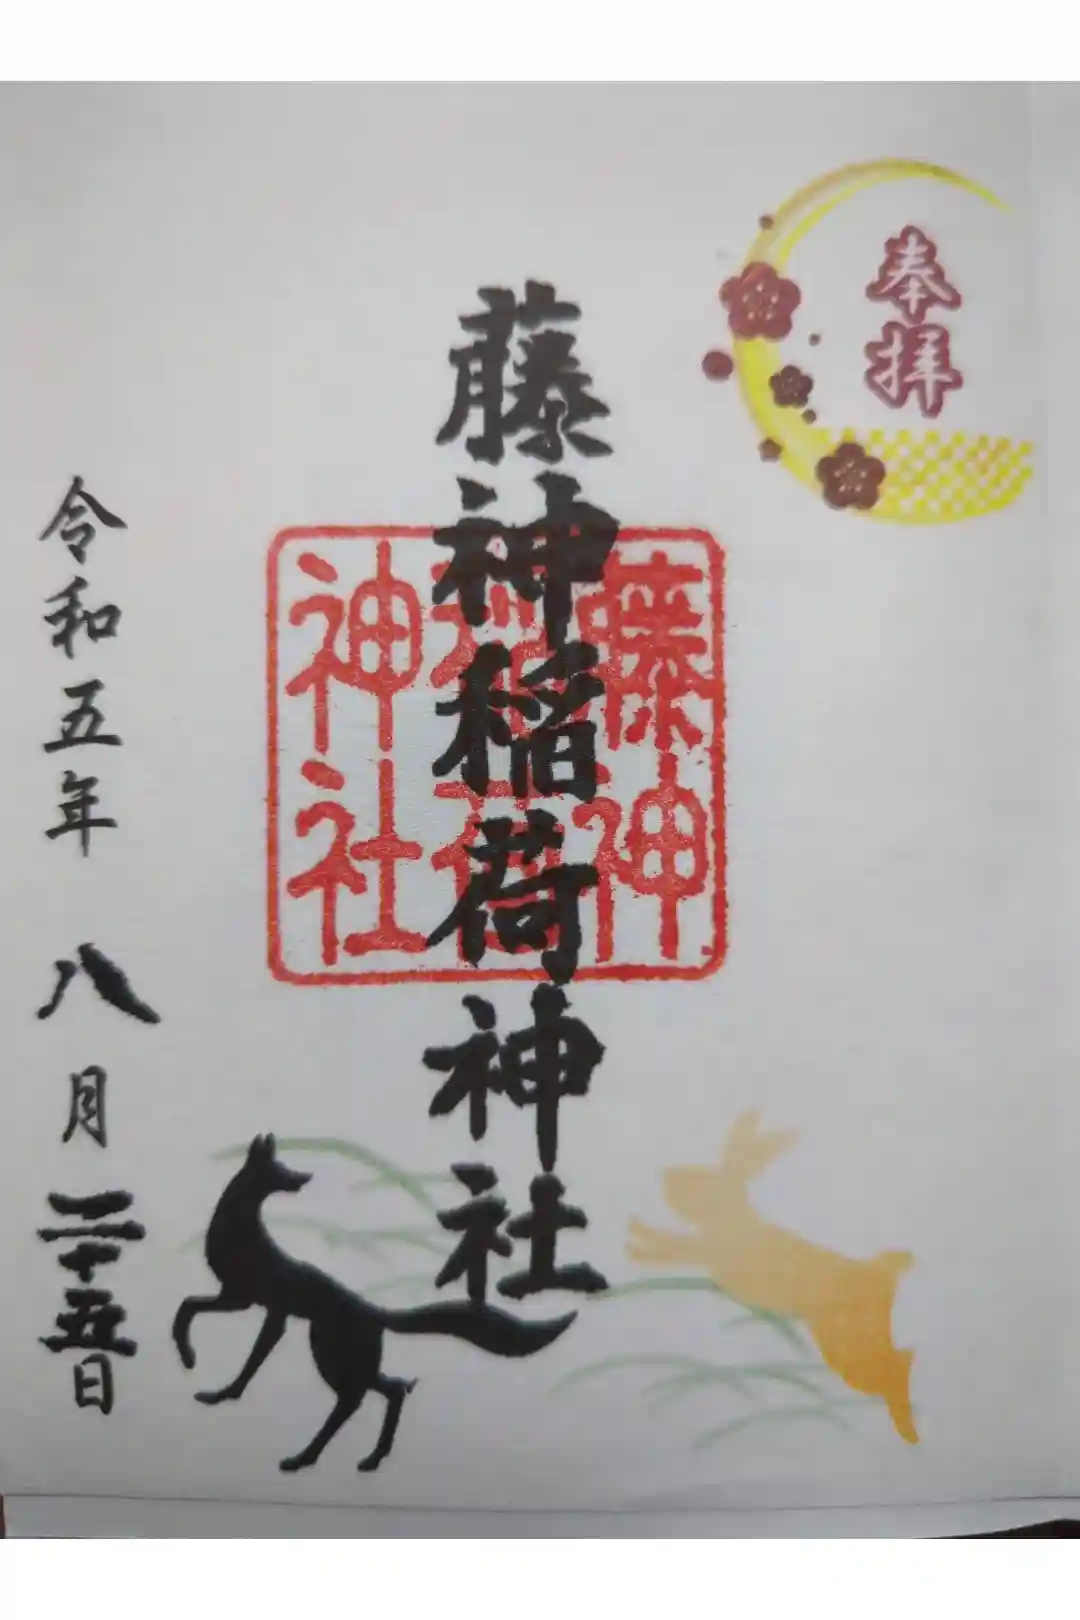 奉拝
藤神稲荷神社
藤神
稲荷
神社
令和五年八月二十五日